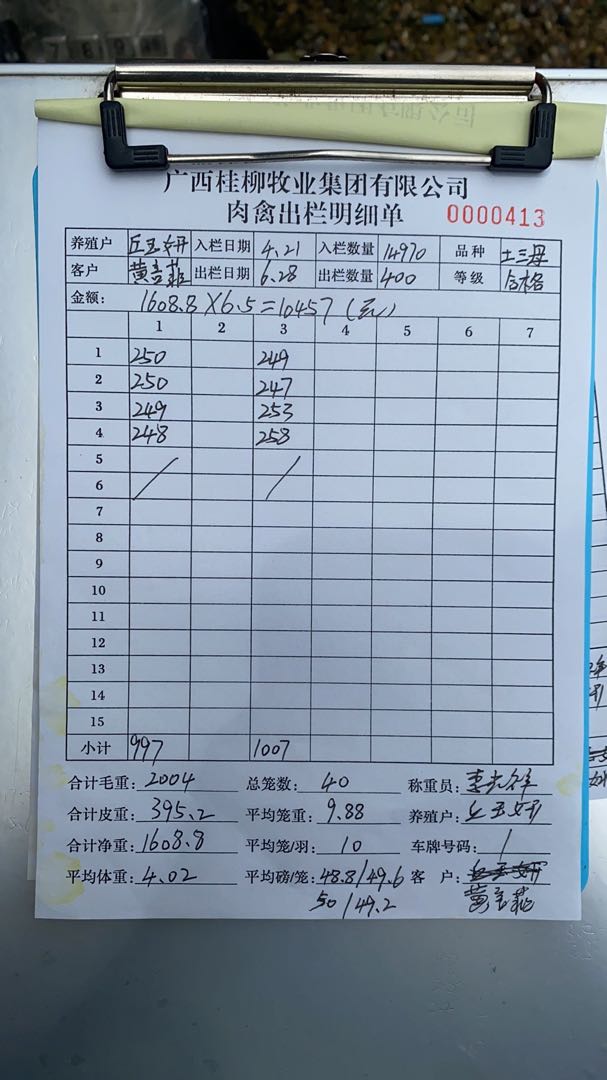 广西桂柳牧业集团有限公司
肉禽出栏明细单 0000413
养殖户 丘玉妍 入栏日期 4.21 入栏数量 14970 品种 土三丹
客户 黄言菲 出栏日期 6.28 出栏数量 400 等级 合格
金额: 1608.8×6.5=10457(元)
1 2 3 4 5 6 7
1 250 249
2 250 247
3 249 253
4 248 258
5
6
7
8
9
10
11
12
13
14
15
小计 997 1007
合计毛重: 2004 总笼数: 40 称重员:
合计皮重: 395.2 平均笼重: 9.88 养殖户: 丘玉妍
合计净重: 1608.8 平均笼/羽: 10 车牌号码: /
平均体重: 4.02 平均磅/笼: 48.8/49.6 客 户: 丘玉妍
50/49.2 黄言菲